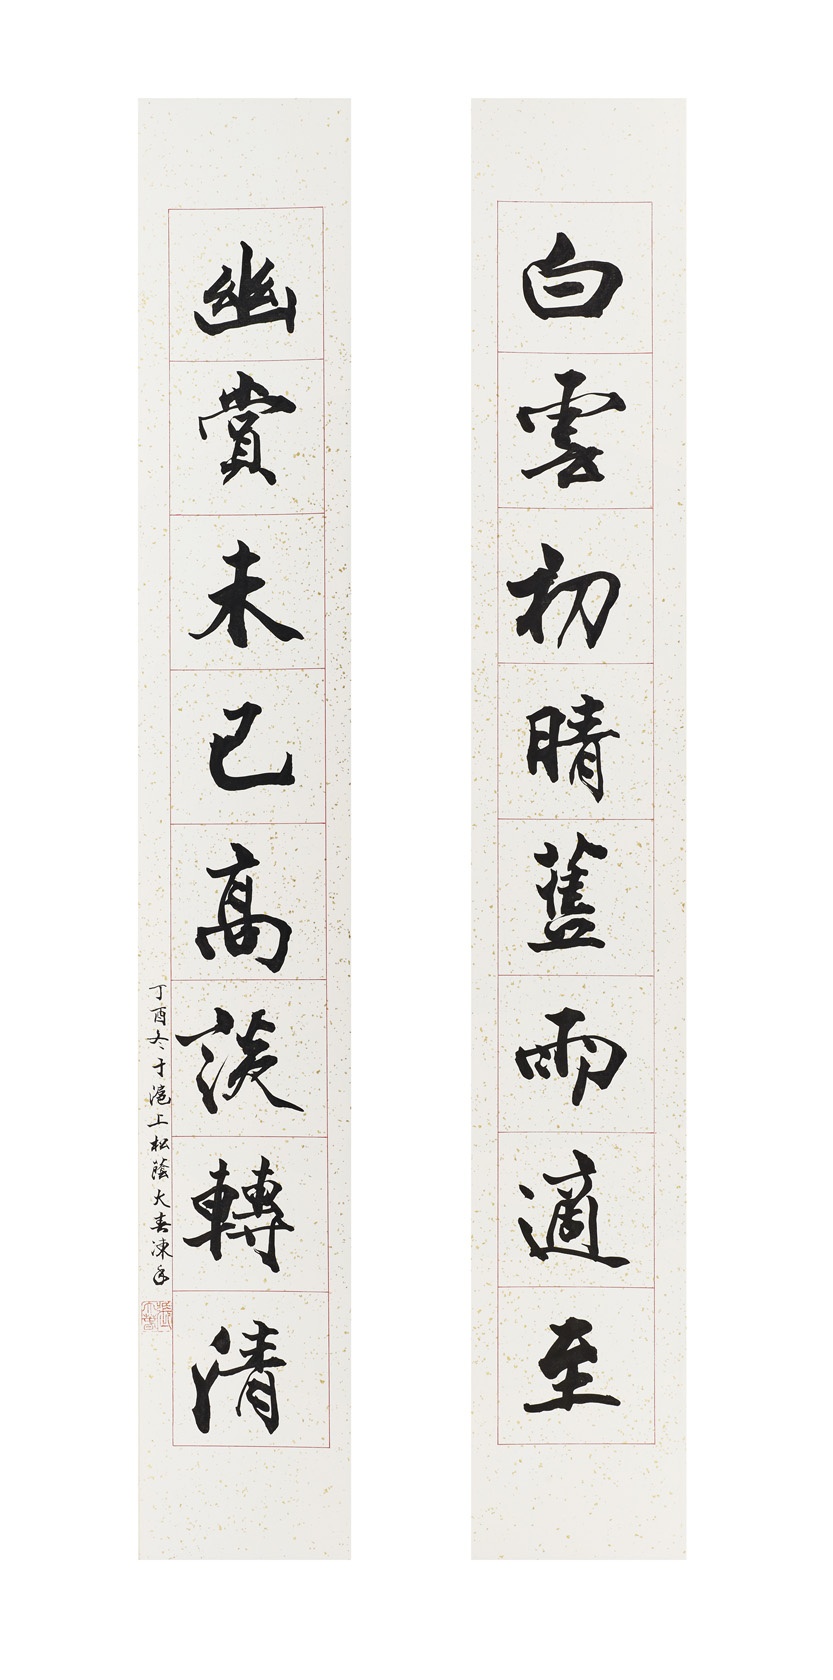 白雲初晴舊雨適至
幽賞未已高談轉清
丁酉冬于滬上松蔭大春凍手